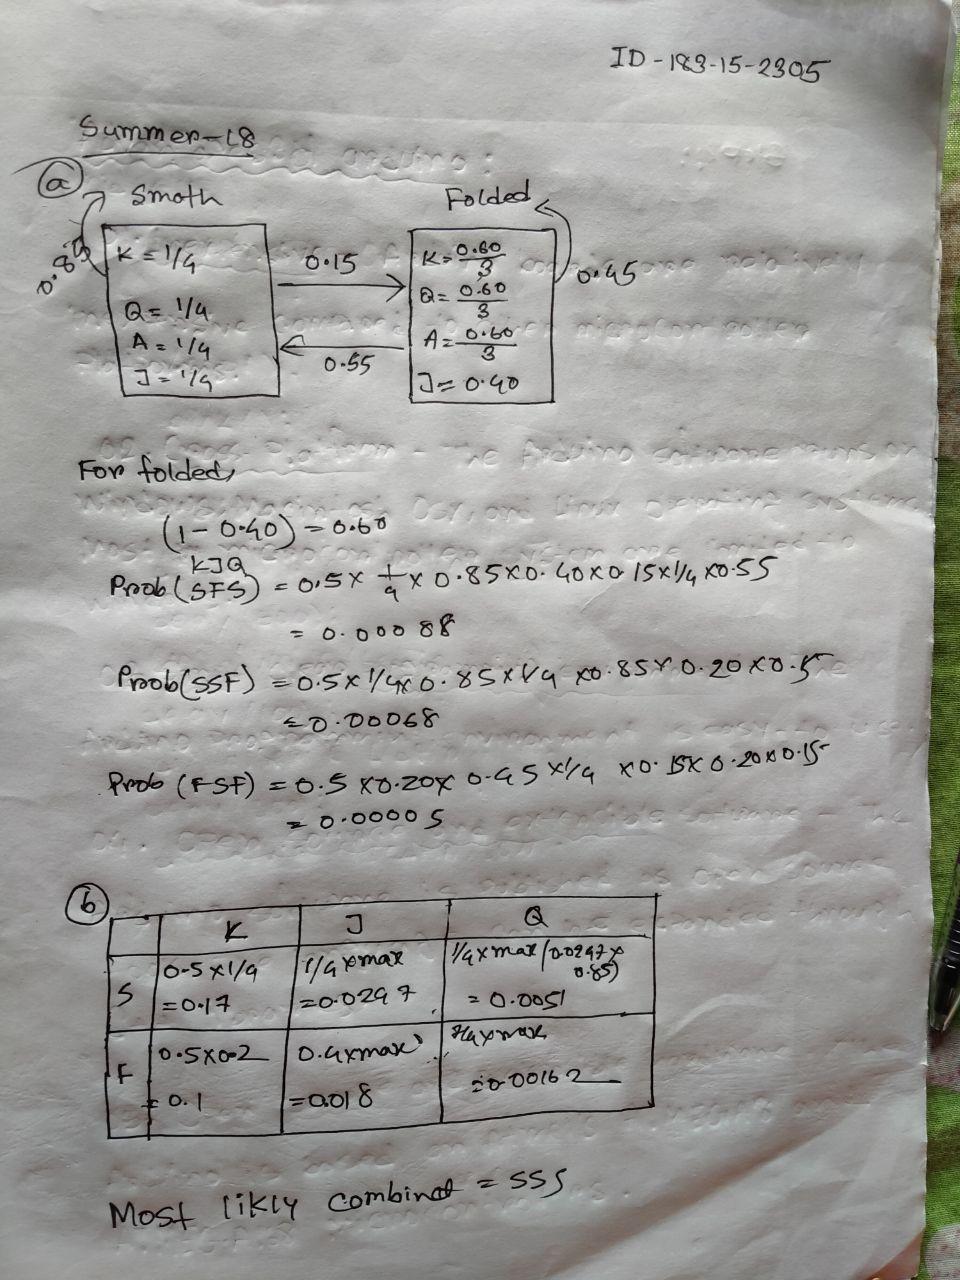 ID-183-15-2305
Summer-18
(a) Smoth Folded
K = 1/4
Q = 1/4
A = 1/4
J = 1/4
0.85
0.15
0.55
K = 0.60/3
Q = 0.60/3
A = 0.60/3
J = 0.40
0.45
For folded,
(1 - 0.40) = 0.60
KJQ
Prob (SFS) = 0.5 x 1/4 x 0.85 x 0.40 x 0.15 x 1/4 x 0.55
= 0.00088
Prob (SSF) = 0.5 x 1/4 x 0.85 x 1/4 x 0.85 x 0.20 x 0.15
= 0.00068
Prob (FSF) = 0.5 x 0.20 x 0.45 x 1/4 x 0.15 x 0.20 x 0.15
= 0.00005
(b)
K J Q
S 0.5 x 1/4 1/4 x max 1/4 x max (0.0297 x 0.85)
= 0.17 = 0.0297 = 0.0051
F 0.5 x 0.2 0.4 x max
= 0.1 = 0.018 = 0.00162
Most likly combinat = SSS